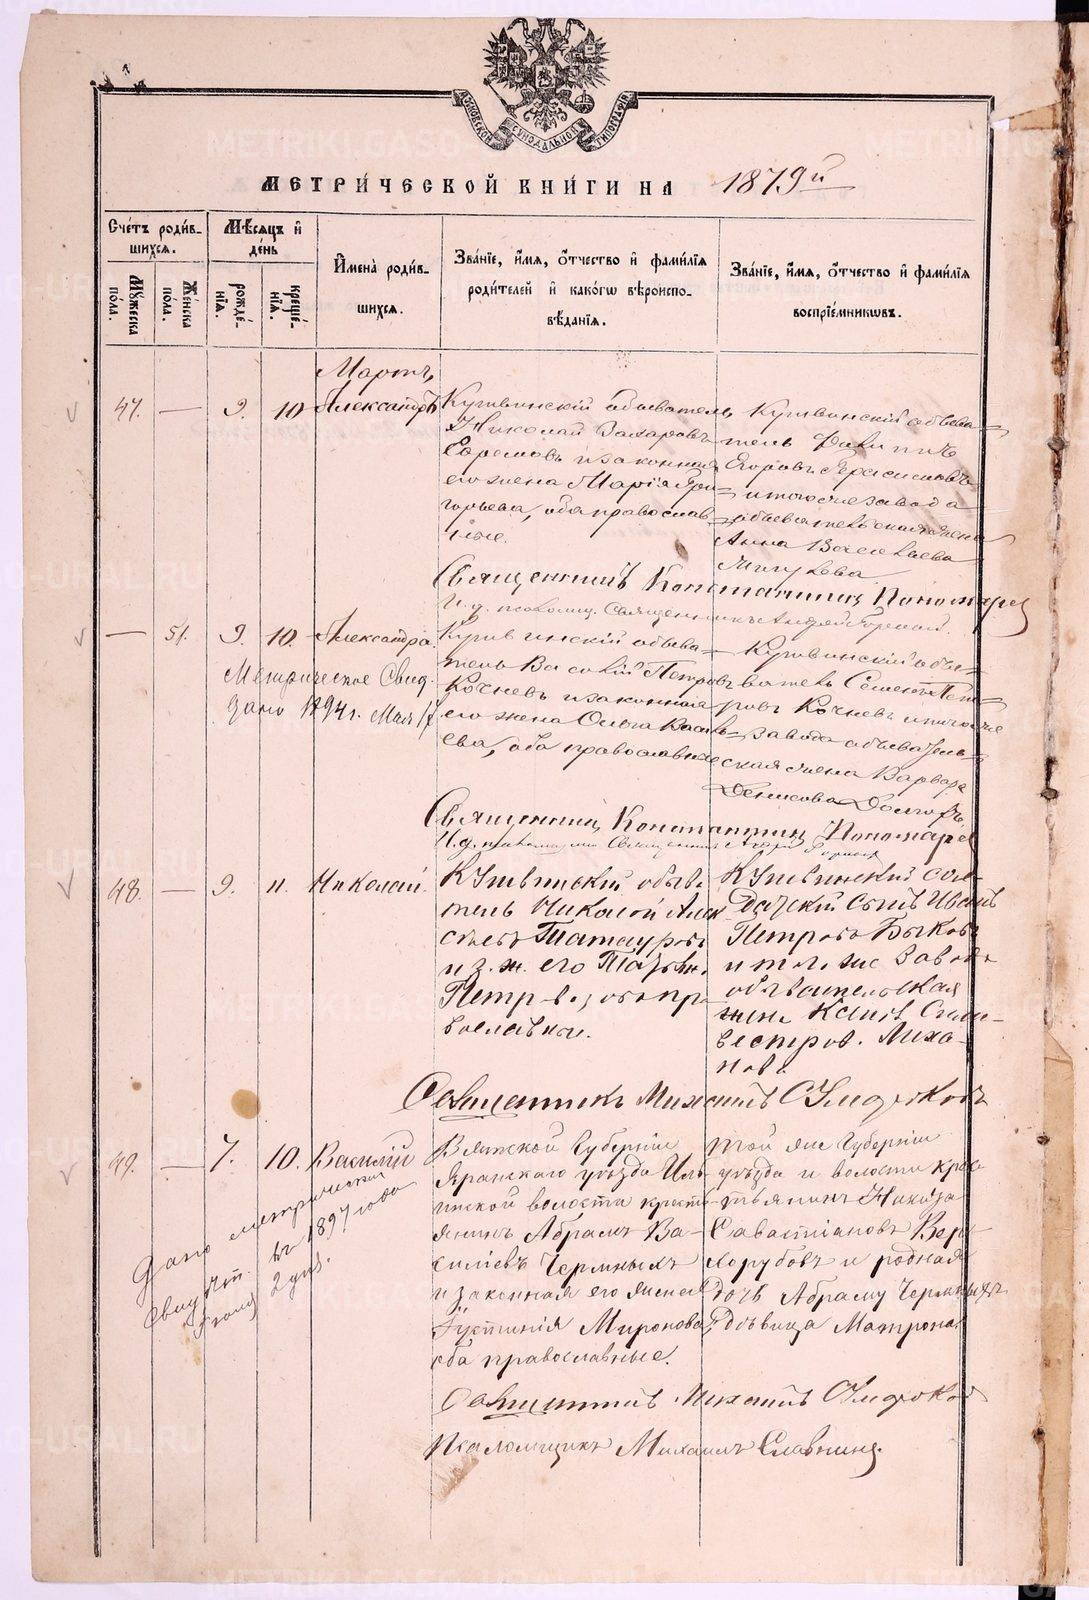 МОСКОВСКОЙ СѴНОДАЛЬНОЙ ТИПОГРАФІИ
МЕТРИ́ЧЕСКОЙ КНИ́ГИ НА 1879й
Сче́тъ роди́в-
шихся.
Мѣ́сяцъ и҆
де́нь
Мꙋ́жеска по́ла.
Же́нска по́ла.
рожде́-
нїя.
креще́-
нїя.
И҆мена̀ роди́в-
шихся.
Зва́нїе, и҆́мя, ѻ҆́тчество и҆ фами́лїя
роди́телей и҆ како́гѡ вѣроиспо-
вѣ́данїя.
Зва́нїе, и҆́мя, ѻ҆́тчество и҆ фами́лїя
воспрїе́мникѡвъ.
Мартъ
47. — 9. 10 Александръ
Кушвинскій обыватель
Николай Захаровъ
Ефремовъ и законная
его жена Марія Гри=
горьева, оба православ=
ные.
Кушвинскій обыва=
тель Филиппъ
Егоровъ Герасимовъ
и того же завода
обывательская жена
Анна Васильева
Священникъ Константинъ Пономарев
И.д. псаломщ. Священникъ Андрей Горных
— 51. 9. 10. Александра.
Метрическое Свид.
дано 1894 г. Мая 17
Кушвинскій обыва=
тель Василій Петровъ
Кочневъ и законная
его жена Ольга Василь=
ева, оба православные
Кушвинскій обы=
ватель Семенъ Пет=
ровъ Кочневъ и того же
завода обыватель=
ская жена Варвара
Денисова
Священникъ Константинъ Пономарев
И.д. псаломщика Священникъ Андрей Горных
48. — 9. 11. Николай.
Кушвинский обыва
тель Николай Алек
сѣевъ Татауровъ
и з. ж. его Татьян.
Петрова, оба пра
вославные.
Кушвинский сол-
датский сынъ Иванъ
Петровъ Быковъ
и того же завода
обывательская
жена
Священникъ Михаилъ
49. — 7. 10. Василій
Дано метрическое
Свид.
въ 1897 году
Вятской Губерніи
Яранскаго уѣзда Иль-
инской волости кресть-
янинъ Абрамъ Ва-
силіевъ Чермныхъ
и законная его жена
Іустинія Миронова,
оба православные.
той же Губерніи
уѣзда и волости крес
тьянинъ Никита
Савастіановъ Вер-
хорубовъ и родная
дочь Абраму Чермныхъ
дѣвица Матрона.
Священникъ Михаилъ
Псаломщикъ Михаилъ Славнинъ.